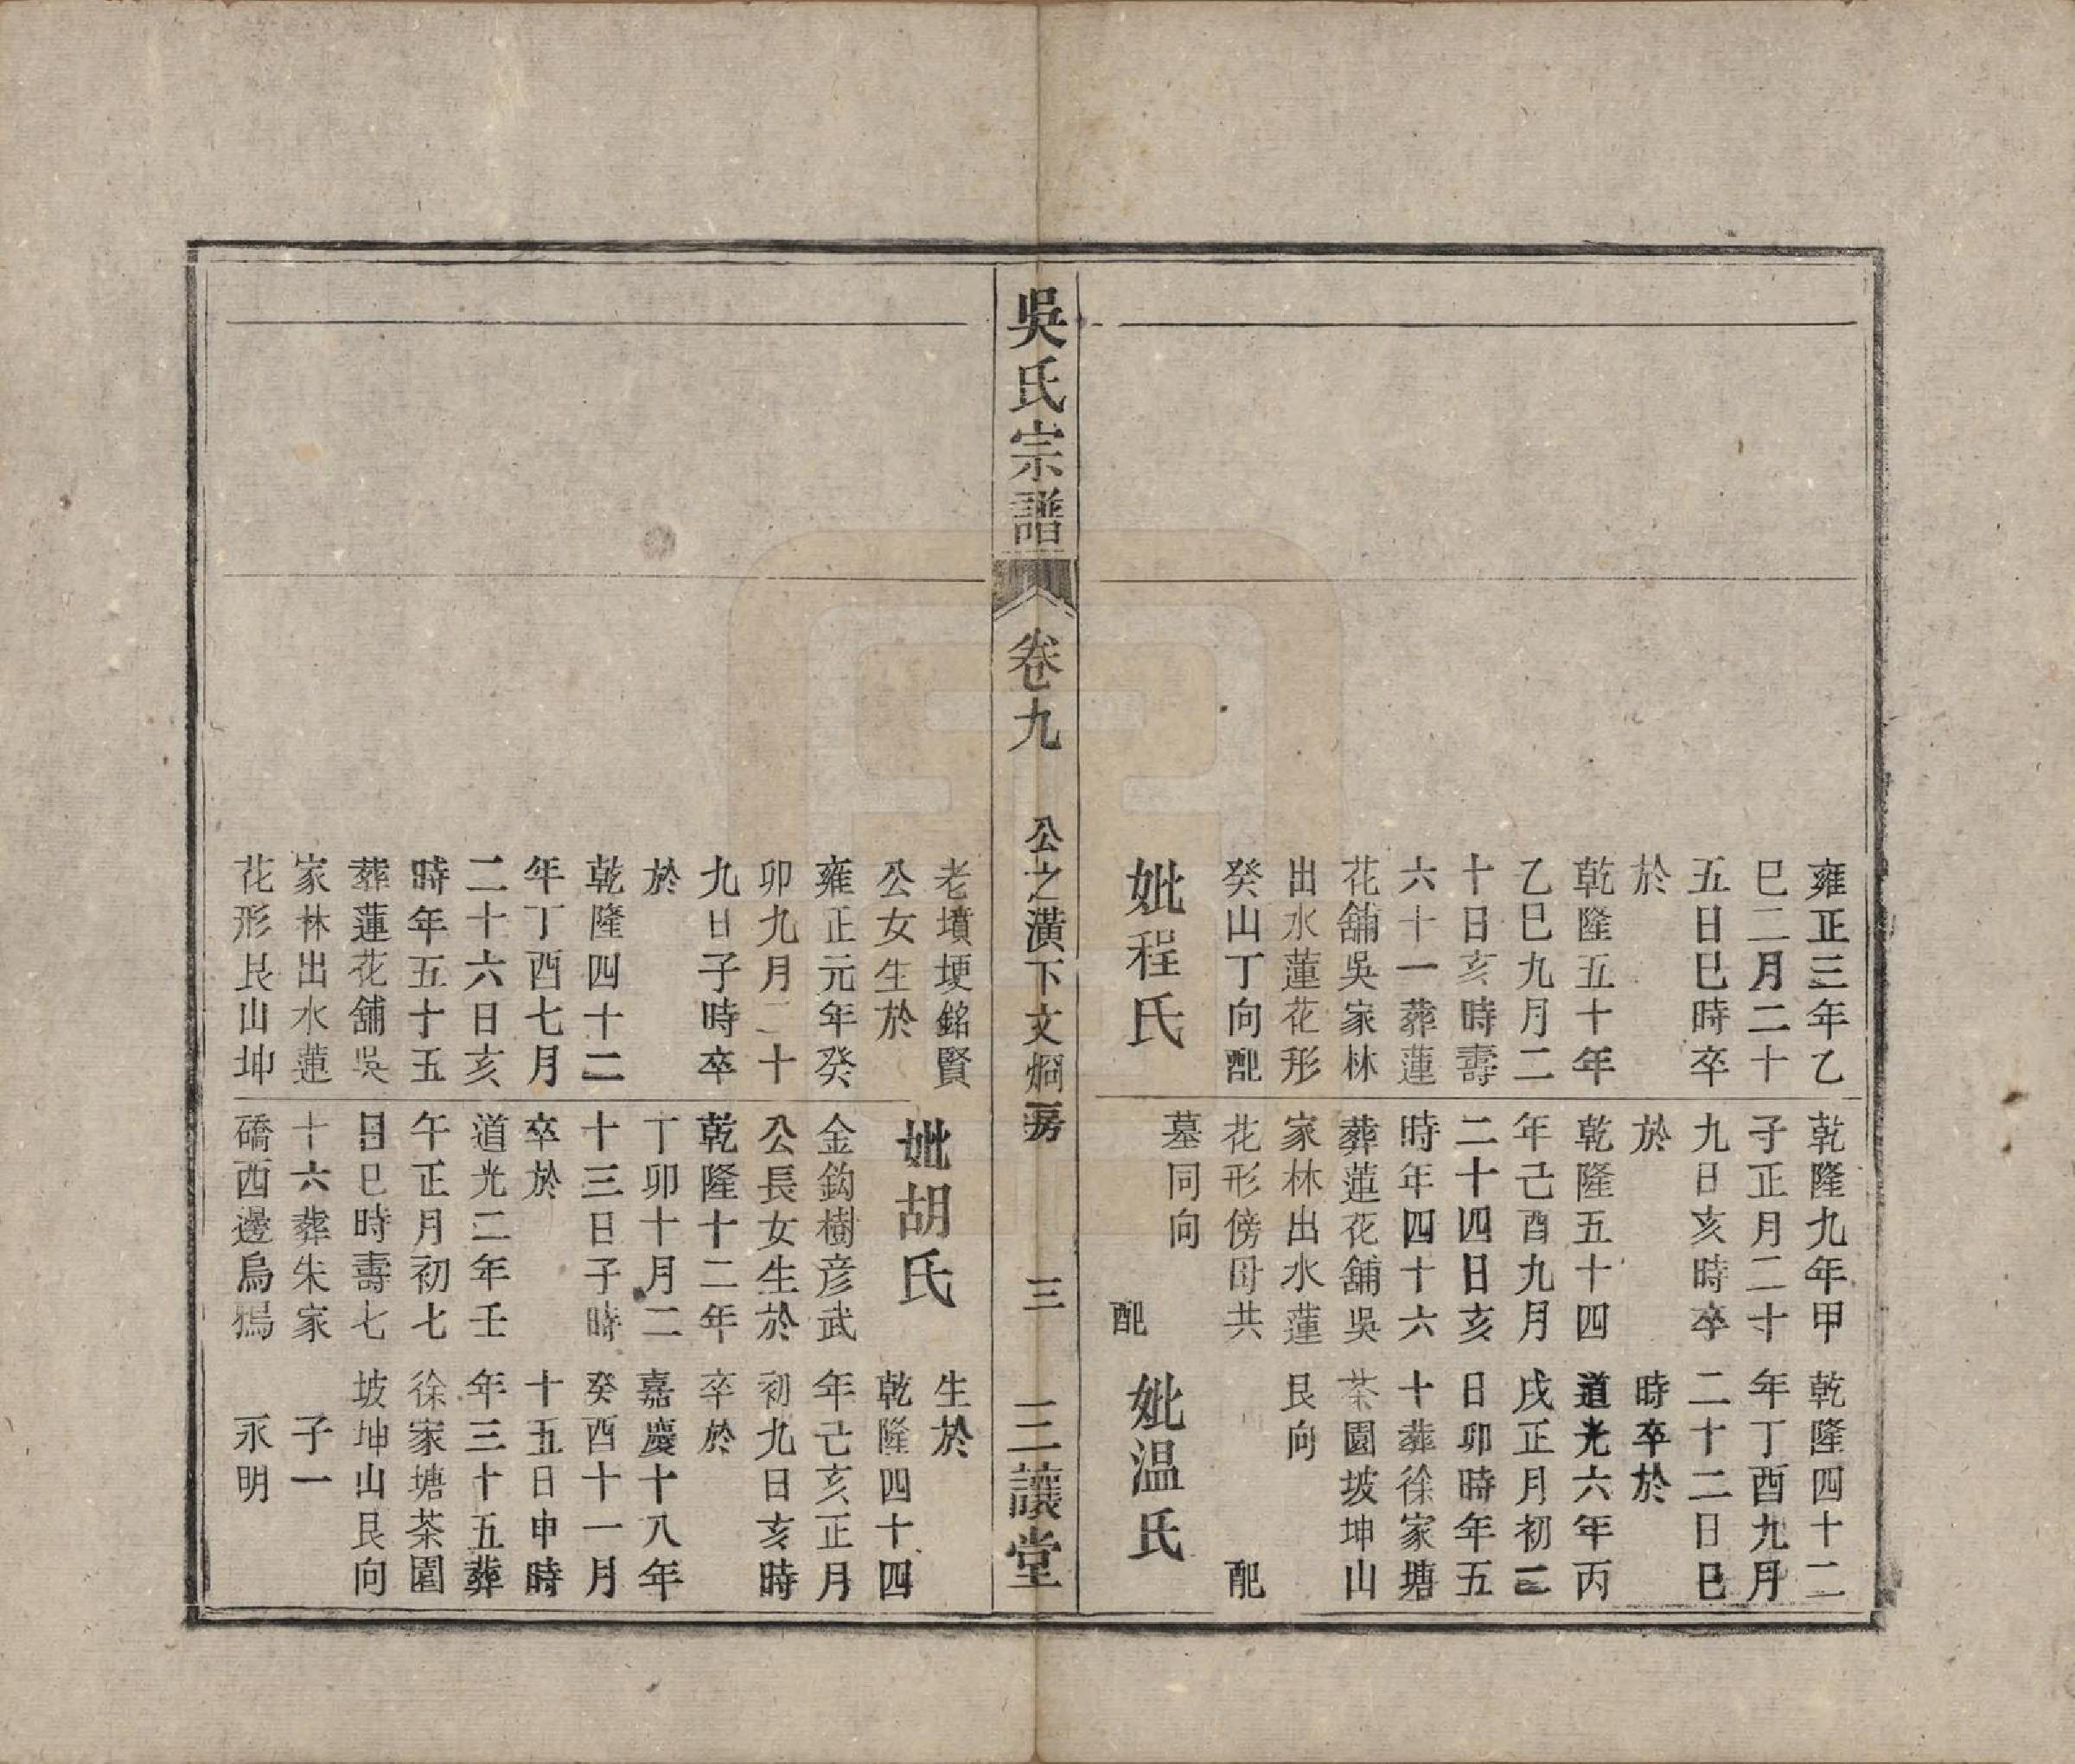 雍正三年乙
巳二月二十
五日巳時卒
於
乾隆五十年
乙巳九月二
十日亥時壽
六十一葬蓮
花舖吳家林
出水蓮花形
癸山丁向配
妣程氏
乾隆九年甲
子正月二十
九日亥時卒
於
乾隆五十四
年己酉九月
二十四日亥
時年四十六
葬蓮花舖吳
家林出水蓮
花形傍母共
墓同向
配
乾隆四十二
年丁酉九月
二十二日巳
時卒於
道光六年丙
戌正月初二
日卯時年五
十葬徐家塘
茶園坡坤山
艮向
配
妣温氏
吳氏宗譜
卷九
公之潢下文烱房
三
三讓堂
老墳埂銘賢
公女生於
雍正元年癸
卯九月二十
九日子時卒
於
乾隆四十二
年丁酉七月
二十六日亥
時年五十五
葬蓮花舖吳
家林出水蓮
花形艮山坤
妣胡氏
金鈎樹彦武
公長女生於
乾隆十二年
丁卯十月二
十三日子時
卒於
道光二年壬
午正月初七
日巳時壽七
十六葬朱家
礄西邊烏鴉
生於
乾隆四十四
年己亥正月
初九日亥時
卒於
嘉慶十八年
癸酉十一月
十五日申時
年三十五葬
徐家塘茶園
坡坤山艮向
子一
永明